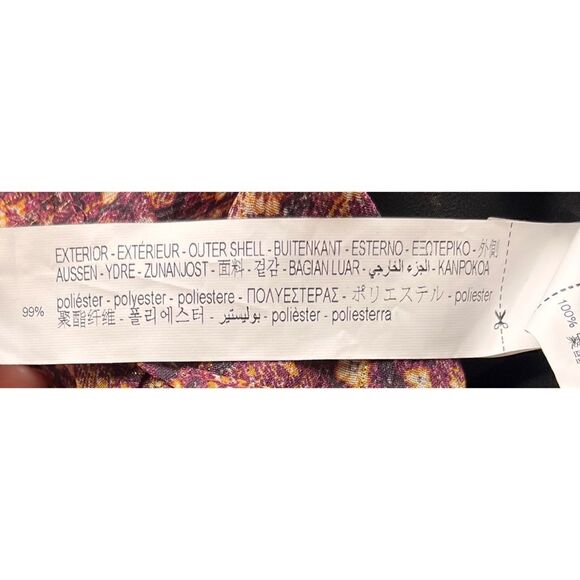 EXTERIOR - EXTÉRIEUR - OUTER SHELL - BUITENKANT - ESTERNO - ΕΞΩΤΕΡΙΚΟ - 外側
AUSSEN - YDRE - ZUNANJOST - 面料 - 겉감 - BAGIAN LUAR - الجزء الخارجي - KANPOKOA
99% poliéster - polyester - poliestere - ΠΟΛΥΕΣΤΕΡΑΣ - ポリエステル - poliester
聚酯纤维 - 폴리에스터 - بوليستير - polièster - poliesterra
100%